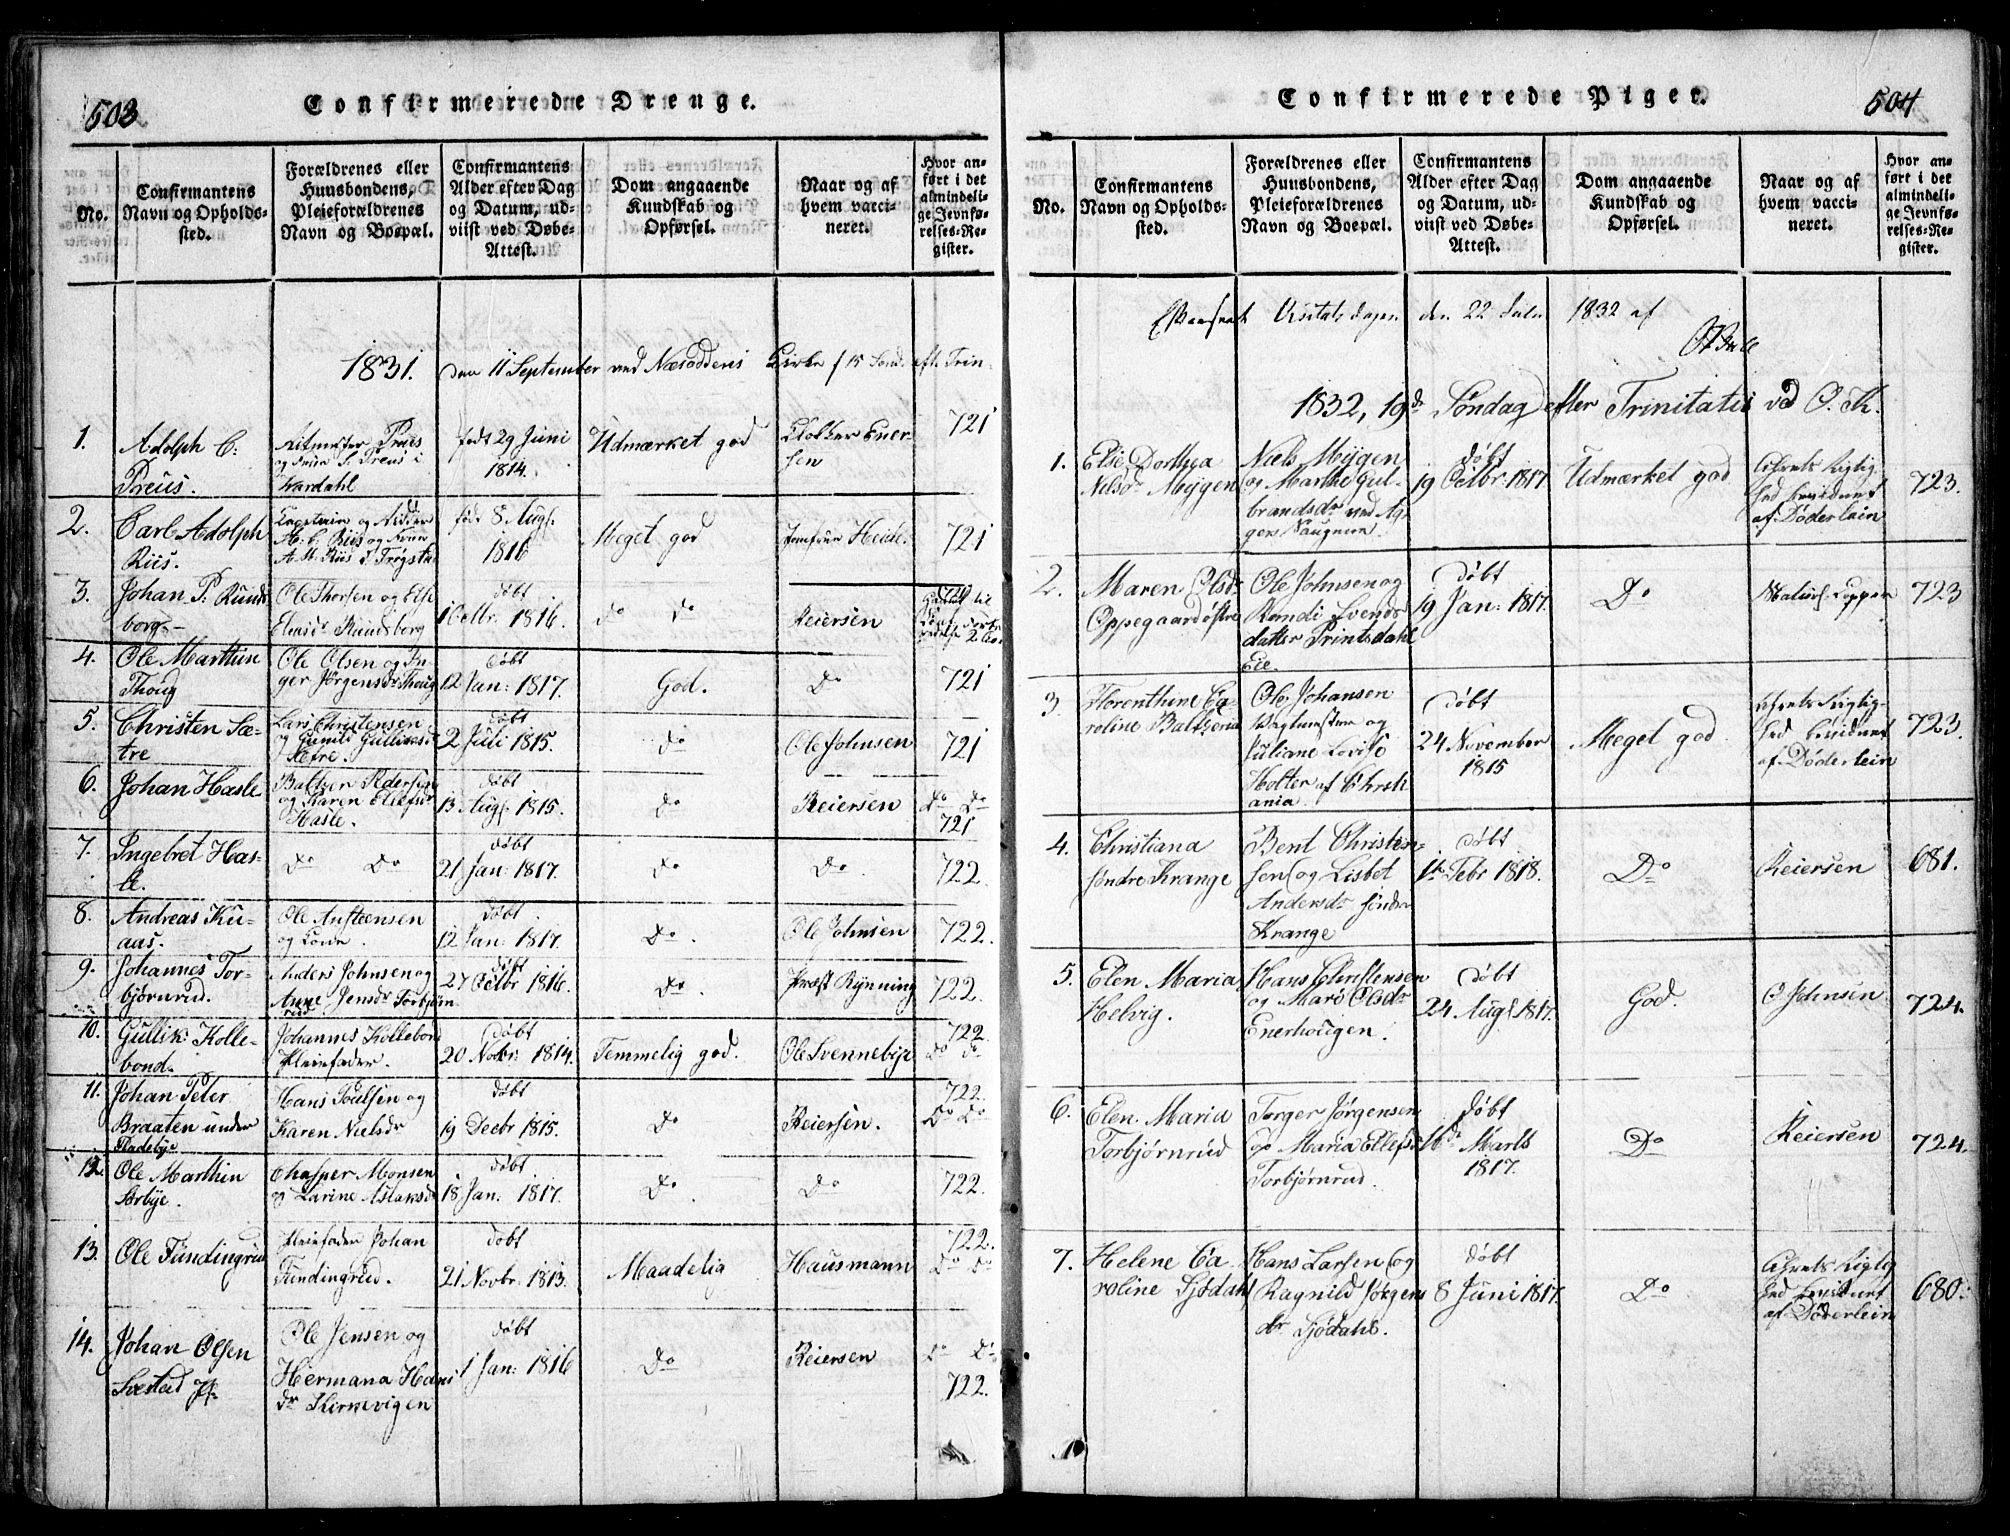 503
Confirmerede Drenge.
No.
Confirmantens
Navn og Opholds-
sted.
Forældrenes eller
Huusbondens,
Pleieforældrenes
Navn og Boepæl.
Confirmantens
Alder efter Dag
og Datum, ud-
viist ved Døbe-
Attest.
Dom angaaende
Kundskab og
Opførsel.
Naar og af
hvem vacci-
neret.
Hvor an-
ført i det
almindeli-
ge Jevnfø-
relses-Re-
gister.
1831. den 11 September ved Næsoddens Kirke / 15 Sønd. aft. Trin-
1.
Adolph C:
Preus.
Ritmester Preus
og Frue S. Preus i
Wardahl
født 29 Juni
1814.
Udmærket god
Klokker Ener-
sen
721
2.
Carl Adolph
Riis.
Capitain og Ridder
A. C. Riis og Frue
A. M. Riis i Trøgsta
født 8 Augs.
1816
Meget god
Jomfrue Heide.
721
3.
Johan P. Runds
borg.
Ole Thorsen og Else
Elensdr Rundsborg
døbt
1 Octbr. 1816.
Do Do
Reiersen
720
4.
Ole Marthin
Thoug
Ole Olsen og In-
ger Jørgensdr Thoug
døbt
12 Jan: 1817.
God.
Do
721
5.
Christen Sæ-
tre
Lars Christensen
og Gunild Gulliksdr
Sætre.
døbt
2 Juli 1815.
Do
Ole Johnsen
721
6.
Johan Hasle
Baltzer Pedersen
og Karen Ellefsdr
Hasle.
døbt
13 Augs. 1815.
Do
Reiersen
Do Do
721
7.
Ingebret Has-
le.
Do Do
døbt
21 Jan: 1817.
Do
Do
722.
8.
Andreas Ku-
aas.
Ole Anstensen
og Kone.
døbt
12 Jan: 1817.
Do.
Ole Johnsen
722.
9.
Johannes Tor-
bjørnrud.
Anders Johnsen og
Anne Jensdr Torbjørn
rud
døbt
27 Octbr 1816.
Do.
Præst Rynning
722.
10.
Gullik Kolle-
bond.
Johannes Kollebond
Pleiefader.
døbt
20 Novbr. 1814.
Temmelig god.
Ole Svennebye
722.
Do Do
11.
Johan Peter
Braaten under
Fladebye
Hans Poulsen og
Karen Nielsdr
døbt
19 Decbr 1815.
Do
Reiersen.
722.
Do Do
12.
Ole Marthin
Sørbye.
Chasper Monsen
og Larine Aslaksdr
døbt
18 Jan: 1817.
Do
Do
722.
13.
Ole Fundingrud
Pleiefader Johan
Fundingrud.
døbt
21 Novbr. 1813.
Maadelig
Hausmann
722.
Do Do
14.
Johan Olsen
Svestad
Ole Jensen og
Hermana Hans
dr Skirnevigen
døbt
1 Jan: 1816
Do
Reiersen
Do Do
722.
504
Confirmerede Piger.
No.
Confirmantens
Navn og Opholds-
sted.
Forældrenes eller
Huusbondens,
Pleieforældrenes
Navn og Boepæl.
Confirmantens
Alder efter Dag
og Datum, ud-
viist ved Døbe-
Attest.
Dom angaaende
Kundskab og
Opførsel.
Naar og af
hvem vacci-
neret.
Hvor an-
ført i det
almindeli-
ge Jevnfø-
relses-Re-
gister.
Visitats dagen den 22 Julii 1832 af
1832, 19de Søndag efter Trinitatis ved O. K.
1.
Else Dorthea
Nilsdr Myğen
Niels Mygen
og Marthe Gul-
brandsdr
døbt
19 Octbr. 1817
Udmærket god
Ahrets Rigtig
hed bevidnet
af Døderlein
723.
2.
Maren Olsdr
Oppegaard østre
Ole Johnsen og
Romdi Svends
datter Printsdahl
Eie.
døbt
19 Jan: 1817.
Do
Naturl. Copper
723
3.
Florenthine Ca-
roline Baltheria
Ole Johansen
Vagtmester og
Juliane Lovise
Holter af Christi
ania.
døbt
24 November
1815
Meget god
Ahrets Rigtig-
hed bevidnet
af Døderlein
723.
4.
Christiana
søndre Krange
Bent Christen-
sen og Lisbet
Andersdr søndre
Krange
døbt
1te Febr 1818.
Do
Reiersen
681.
5.
Elen Maria
Helvig.
Hans Christensen
og Mari Olsdr
Enerhougen.
døbt
24 Augs 1817.
God.
O Johnsen
724.
6.
Elen Maria
Torbjørnrud
Torger Jørgensen
og Maria Ellefsd
Torbjørnrud.
døbt
16de Marts
1817.
Do
Reiersen
724.
7.
Helene Ca
roline Sjødahl
Hans Larsen og
Ragnild Jørgens
dr Sjødahl.
døbt
8 Juni 1817.
Do
Ahrets Rigtig
hed bevidnet
af Døderlein
680.